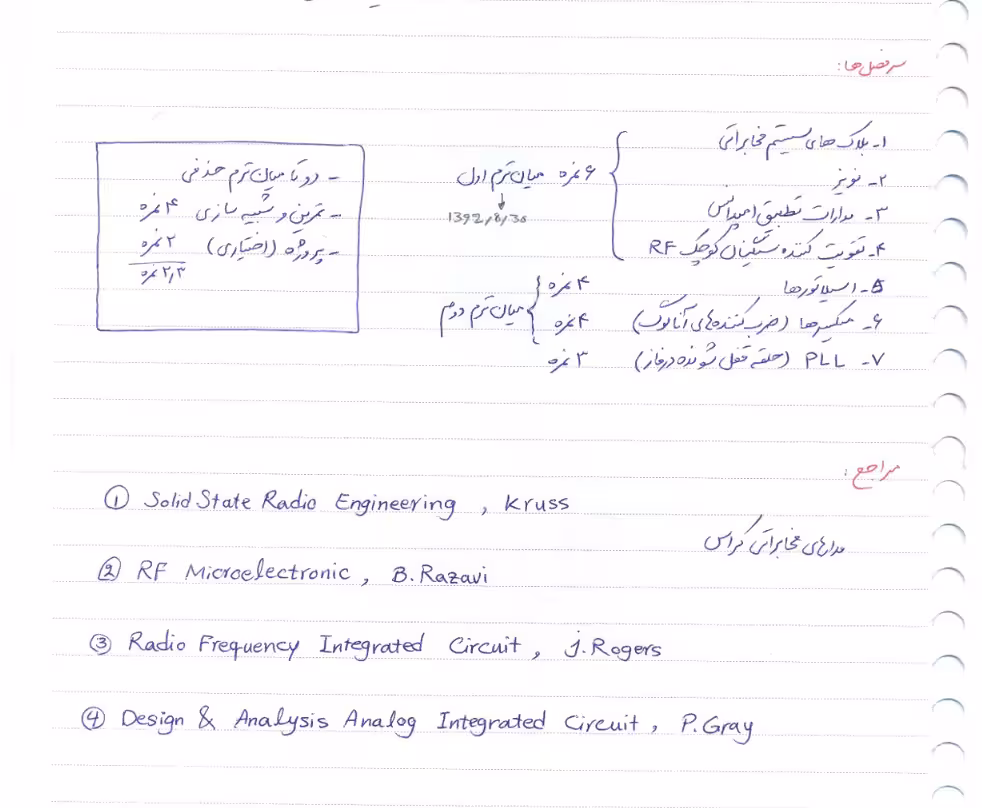 سرفصل‌ها:
۱- بلاک‌های سیستم مخابراتی
۲- نویز
۳- مدارات تطبیق امپدانس
۴- تقویت کننده سیگنال کوچک RF
۶ نمره میان‌ترم اول
1392/8/30
۵- اسیلاتورها ۴ نمره
۶- میکسرها (ضرب‌کننده‌های آنالوگ) ۴ نمره
میان‌ترم دوم
۷- PLL (حلقه قفل شونده در فاز) ۳ نمره
- دو تا میان‌ترم حذفی
- تمرین و شبیه سازی ۴ نمره
- پروژه (اختیاری) ۲ نمره
۲,۳ نمره
مراجع:
① Solid State Radio Engineering , Kruss
مدارهای مخابراتی کراس
② RF Microelectronic , B.Razavi
③ Radio Frequency Integrated Circuit , J.Rogers
④ Design & Analysis Analog Integrated Circuit , P.Gray